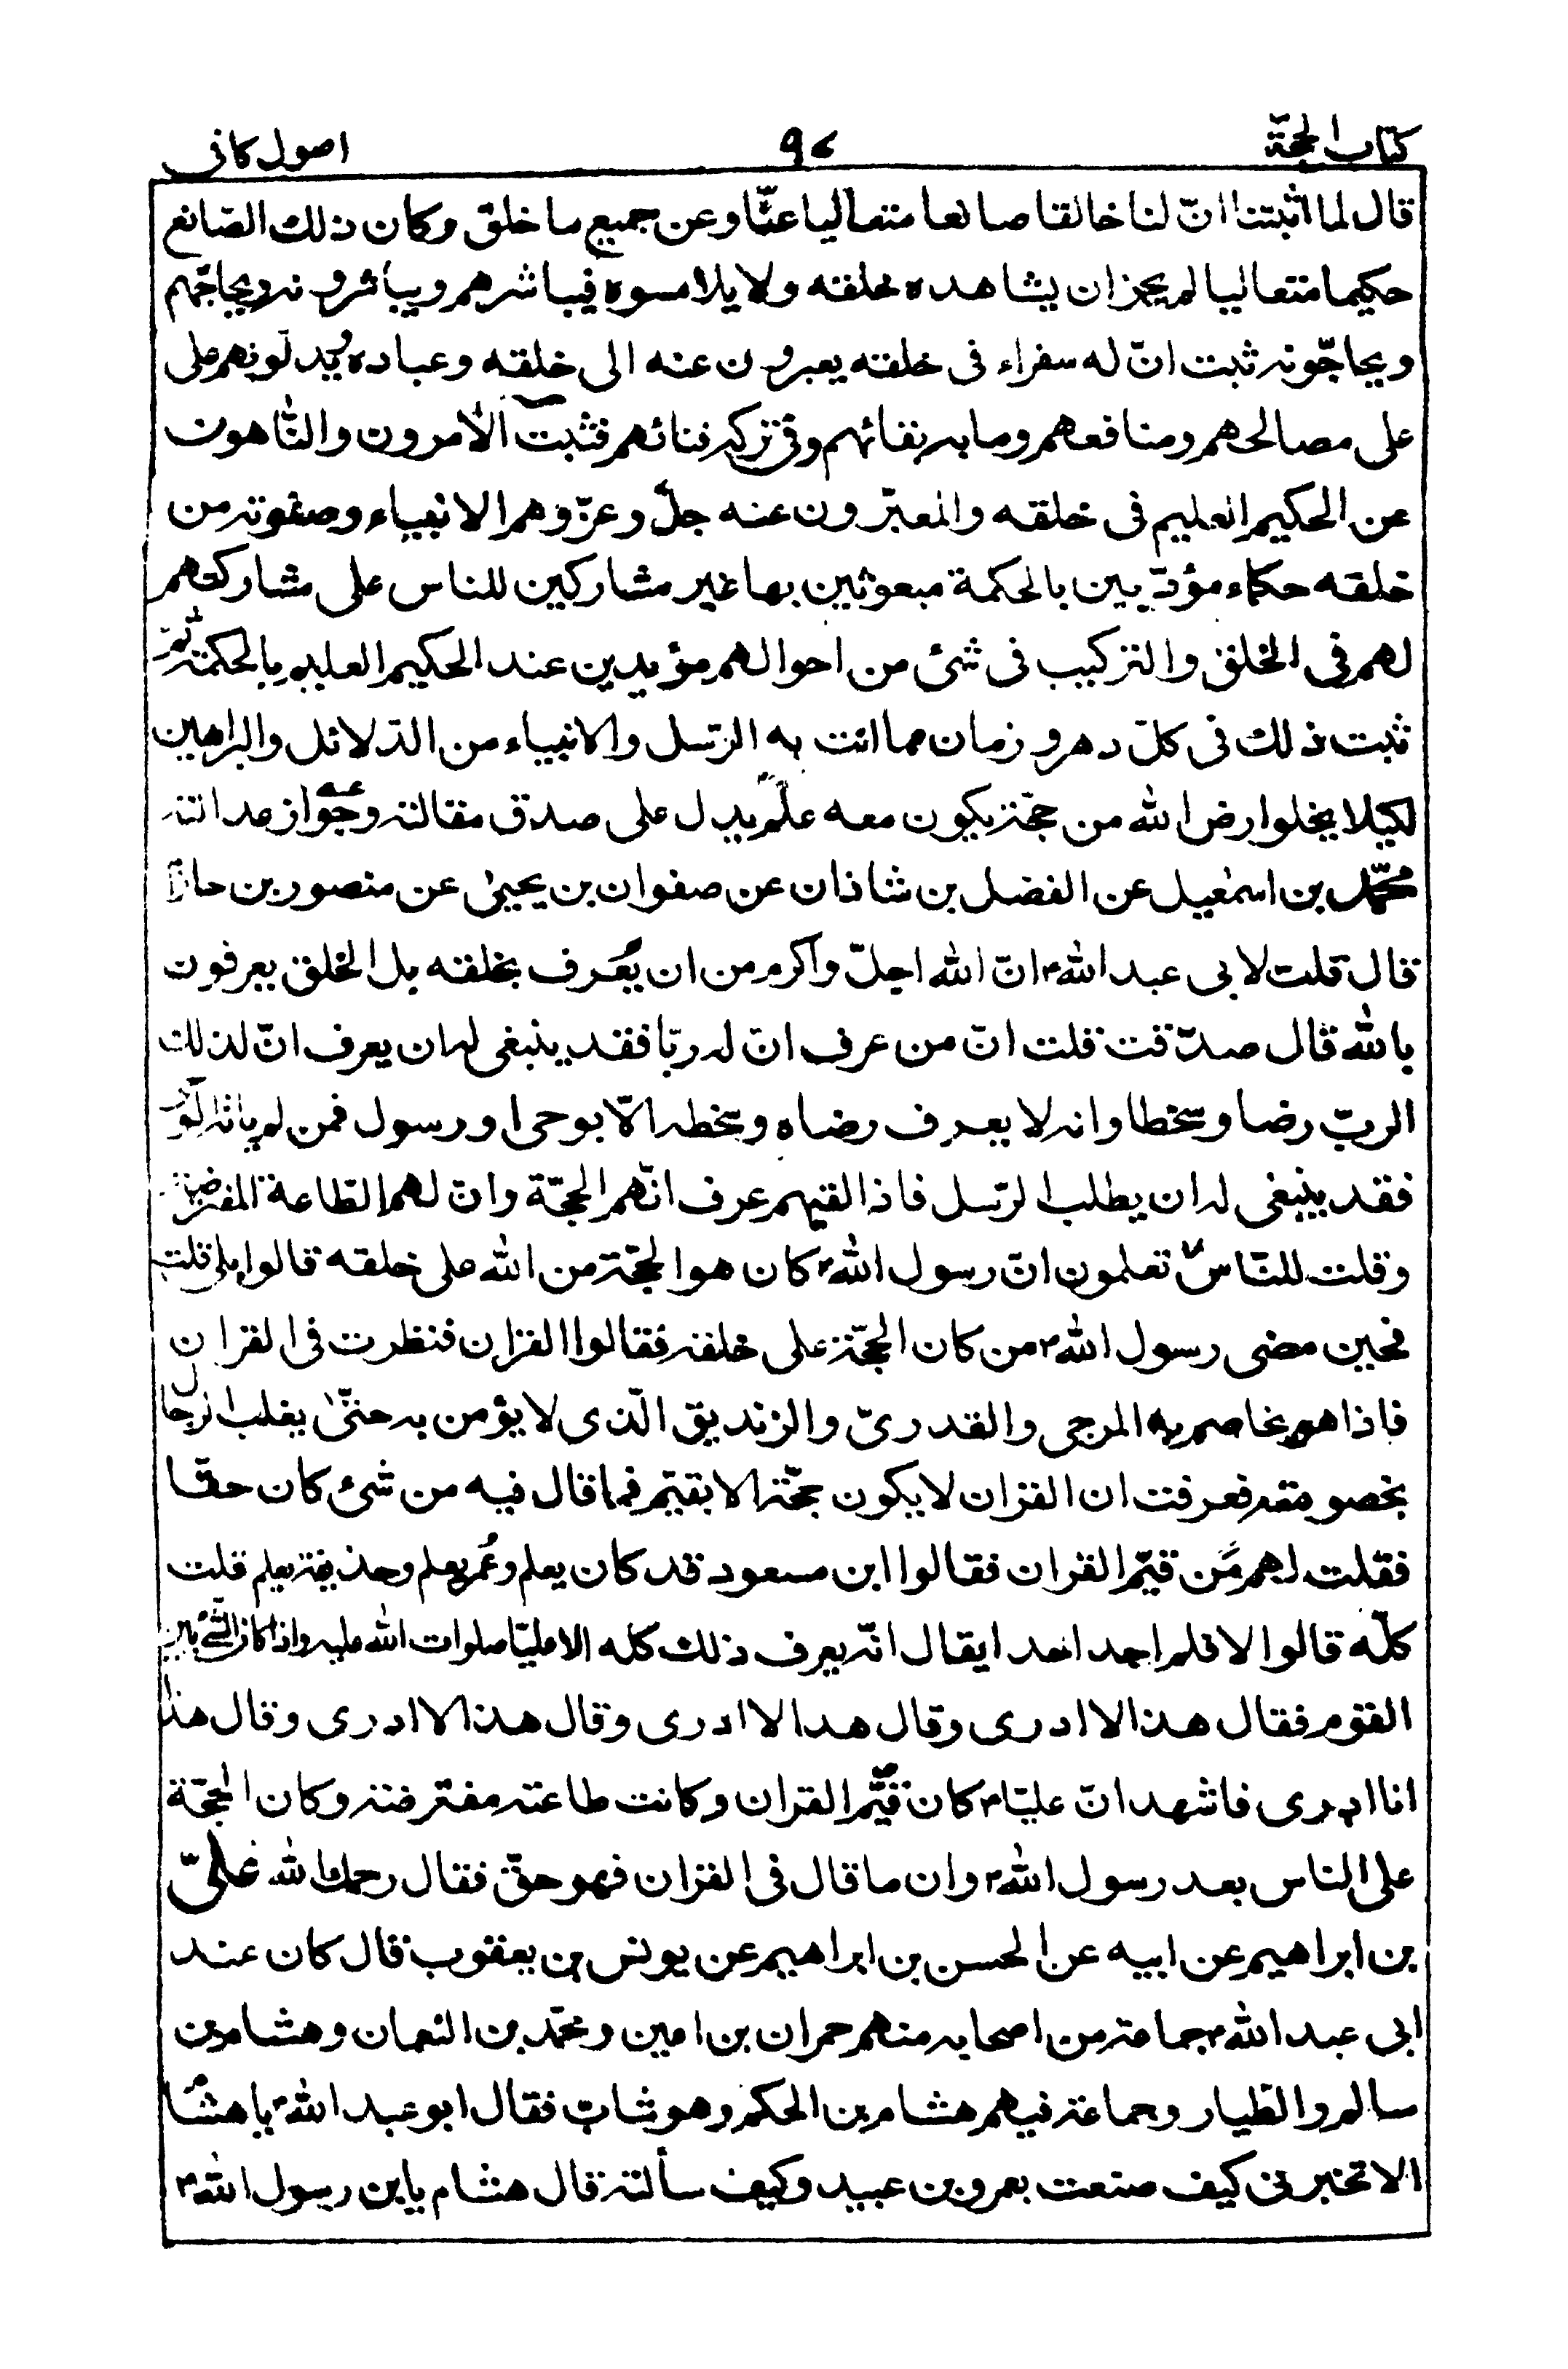 كتاب الحجّة
٩٧
اصول كافى
قال لما اثبتنا انّ لنا خالقا صانعا متعاليا عنّا وعن جميع ما خلق وكان ذلك الصّانع
حكيما متعاليا لم يجز ان يشاهده خلقه ولا يلامسوه فيباشرهم ويباشرونه ويحاجّهم
ويحاجّونه ثبت انّ له سفراء فى خلقه يعبرون عنه الى خلقه وعباده ويدلونهم على
على مصالحهم ومنافعهم وما به بقائهم وفى تركه فنائهم فثبت الآمرون والنّاهون
عن الحكيم العليم فى خلقه والمعبّرون عنه جلّ وعزّ وهم الانبياء وصفوته من
خلقه حكماء مؤدّبين بالحكمة مبعوثين بها غير مشاركين للناس على مشاركتهم
لهم فى الخلق والتركيب فى شئ من احوالهم مؤيدين عند الحكيم العليم بالحكمة ثمّ
ثبت ذلك فى كلّ دهر و زمان مما اتت به الرّسل والانبياء من الدّلائل والبراهين
لكيلا يخلوا رض الله من حجّة يكون معه علم يدل على صدق مقالته وجواز عدالته
محمّد بن اسمٰعيل عن الفضل بن شاذان عن صفوان بن يحيىٰ عن منصور بن حازم
قال قلت لابى عبد الله۴ انّ الله اجلّ واكرم من ان يُعرف بخلقه بل الخلق يعرفون
بالله قال صدّقت قلت انّ من عرف انّ له ربّا فقد ينبغى له ان يعرف انّ لذلك
الربّ رضا وسخطا وانه لا يعرف رضاه وسخطه الّا بوحى او رسول فمن لم يأته الوحى
فقد ينبغى له ان يطلب الرّسل فاذا لقيهم عرف انّهم الحجّة وانّ لهم الطّاعة المفترضة
وقلت للنّاس تعلمون انّ رسول الله۴ كان هو الحجّة من الله على خلقه قالوا بلى قلت
فحين مضى رسول الله۴ من كان الحجّة على خلقه فقالوا القران فنظرت فى القران
فاذا هو يخاصم به المرجى والقدرىّ والزنديق الّذى لا يؤمن به حتّىٰ يغلب الرجال
بخصومته فعرفت ان القران لا يكون حجّة الا بقيّم فما قال فيه من شئ كان حقّا
فقلت لهم مَن قيّم القران فقالوا ابن مسعود قد كان يعلم وعُمر يعلم وحذيفة يعلم قلت
كلّه قالوا لا فلم اجد احدا يقال انّه يعرف ذلك كله الا عليّا صلوات الله عليه واذا كان الشّئ بين
القوم فقال هذا لا ادرى وقال هذا لا ادرى وقال هذا لا ادرى وقال هذا
انا ادرى فاشهد انّ عليّا۴ كان قيّم القران وكانت طاعته مفترضة وكان الحجّة
على الناس بعد رسول الله۴ وان ما قال فى القران فهو حقّ فقال رحمك الله علىّ
بن ابراهيم عن ابيه عن الحسن بن ابراهيم عن يونس بن يعقوب قال كان عند
ابى عبد الله۴ جماعة من اصحابه منهم حمران بن اعين ومحمّد بن النعمان وهشام بن
سالم والطيار وجماعة فيهم هشام بن الحكم وهو شابّ فقال ابو عبد الله۴ يا هشام
الا تخبرنى كيف صنعت بعمرو بن عبيد وكيف سألته قال هشام يابن رسول الله۴